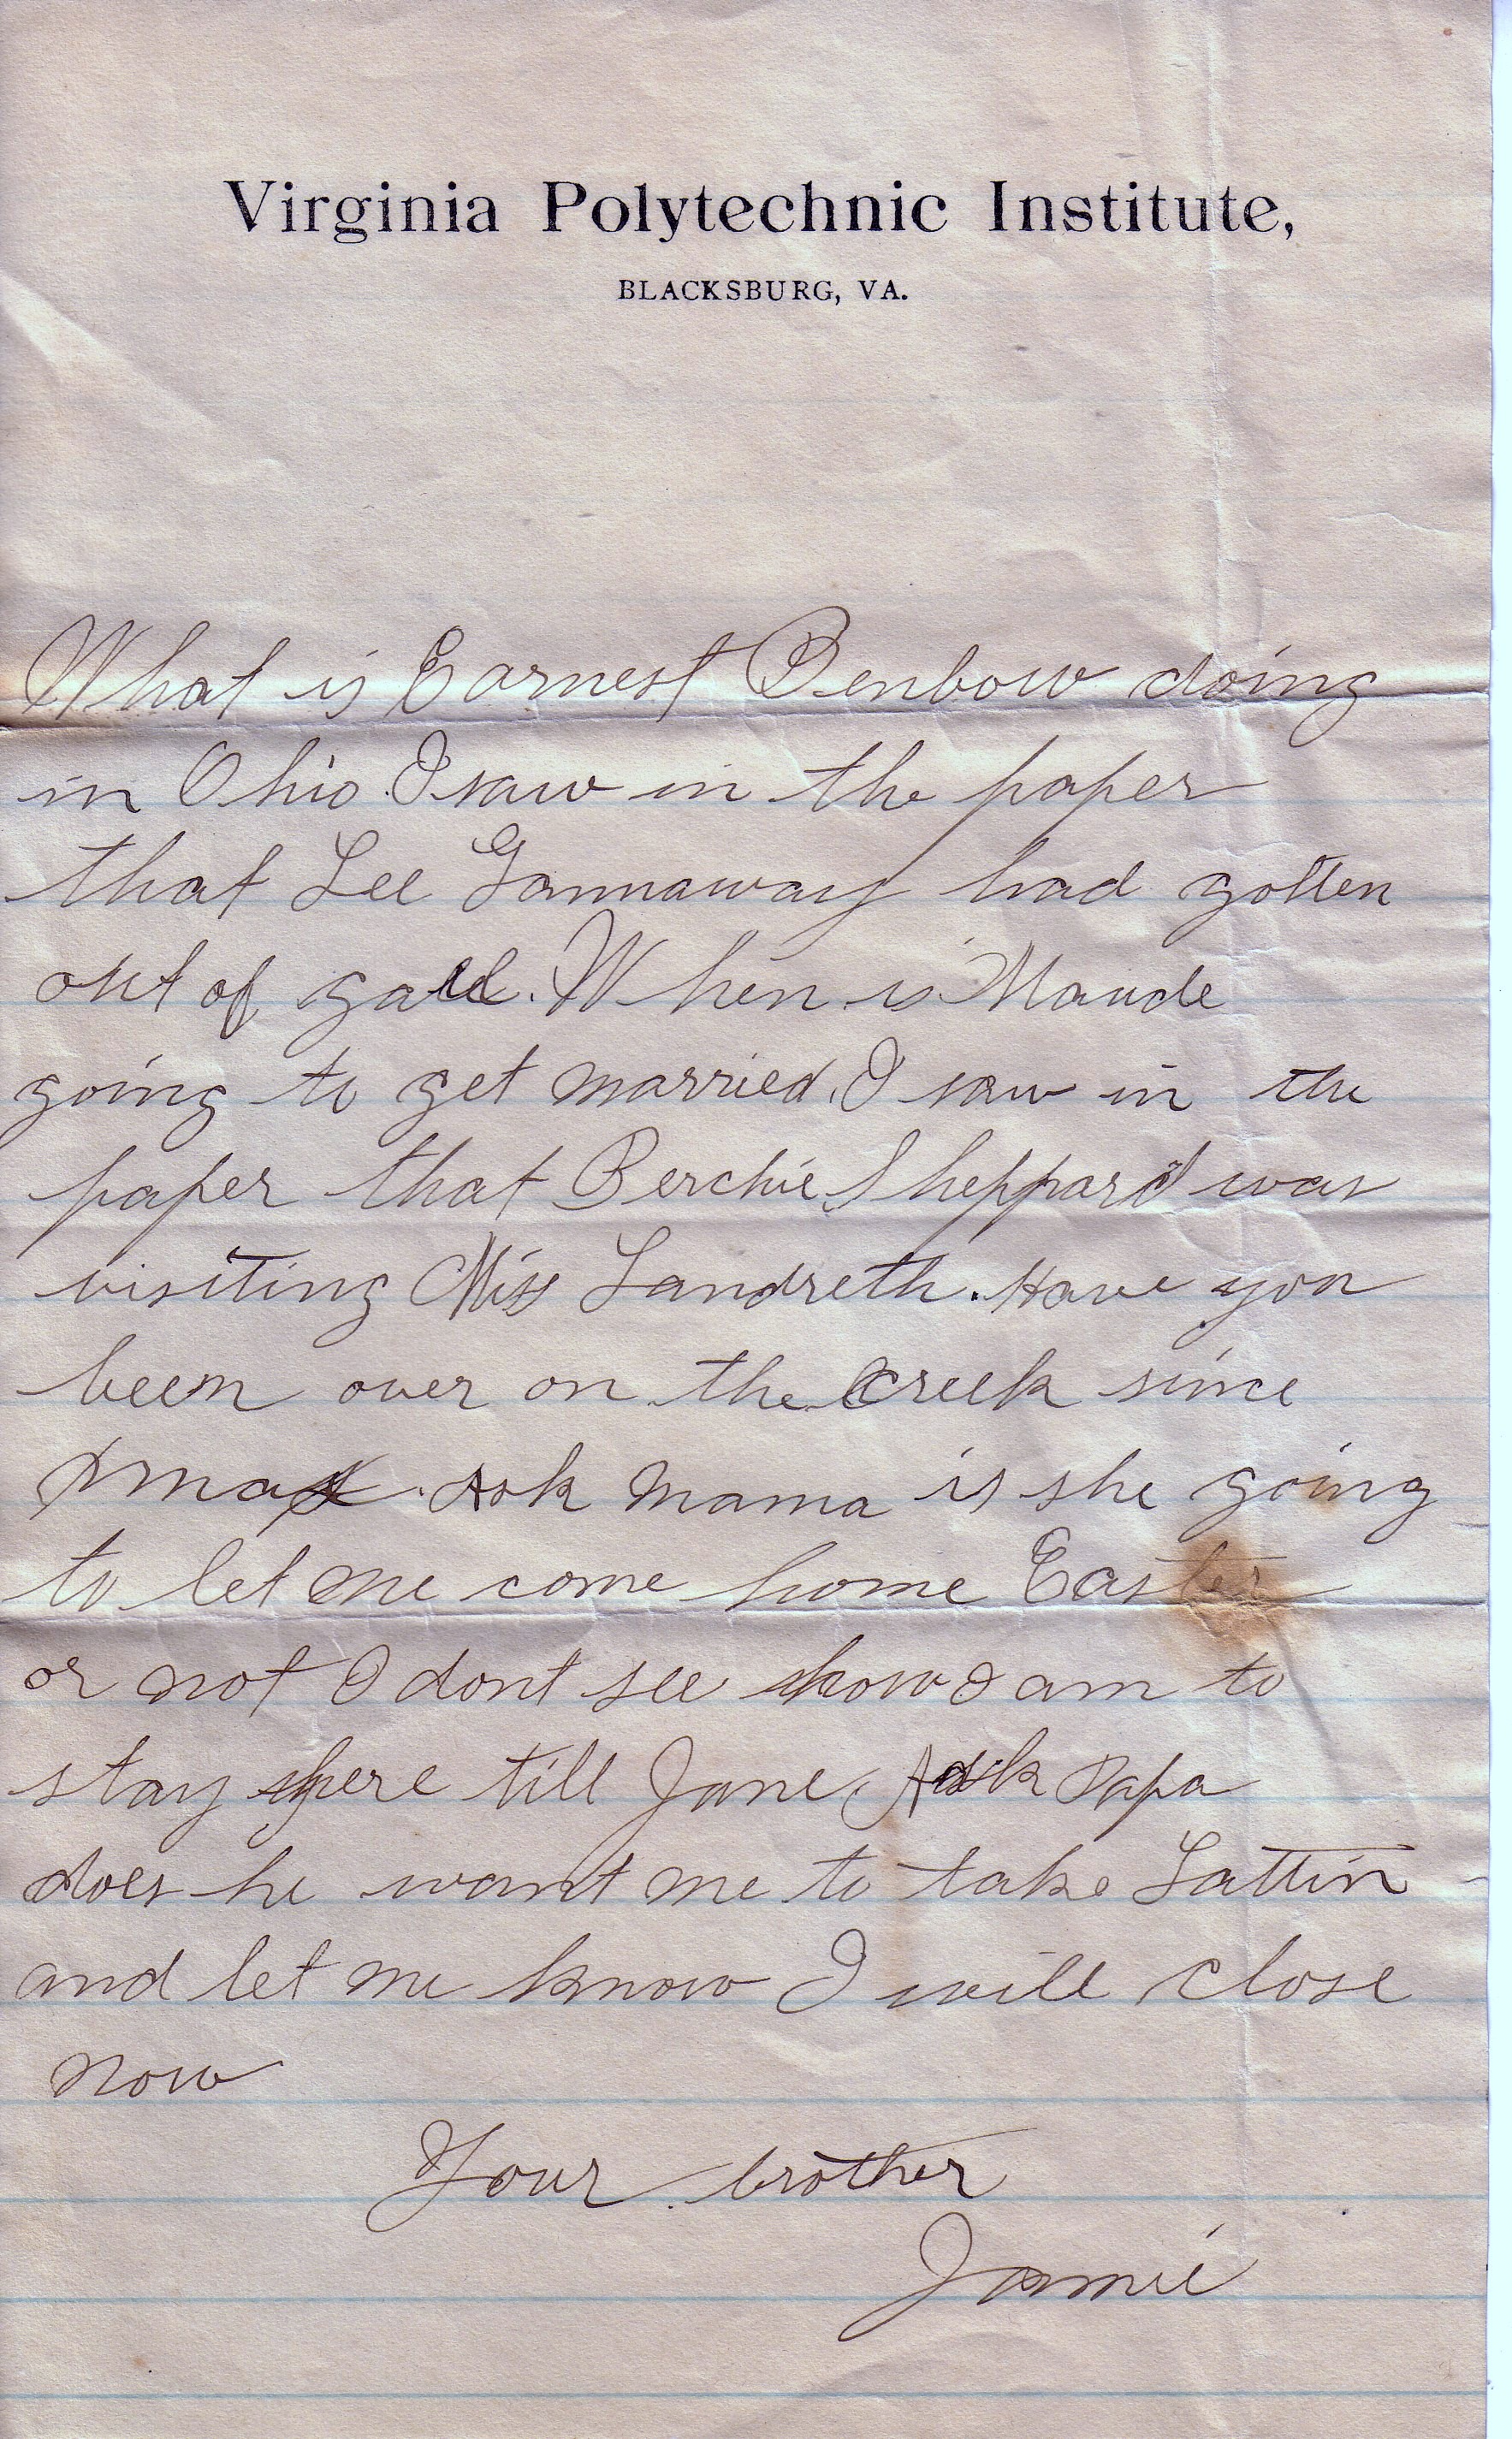 Virginia Polytechnic Institute,
BLACKSBURG, VA.
What is Earnest Benbow doing
in Ohio. I saw in the paper
that Lee Gannaway had gotten
out of gail. When is Maude
going to get married. I saw in the
paper that Berchie Sheppard was
visiting Miss Landreth. Have you
been over on the creek since
Xmas. Ask Mama is she going
to let me come home Easter
or not I dont see how I am to
stay here till June. Ask Papa
does he want me to take Lattin
and let me know I will close
now
Your brother
Jamie